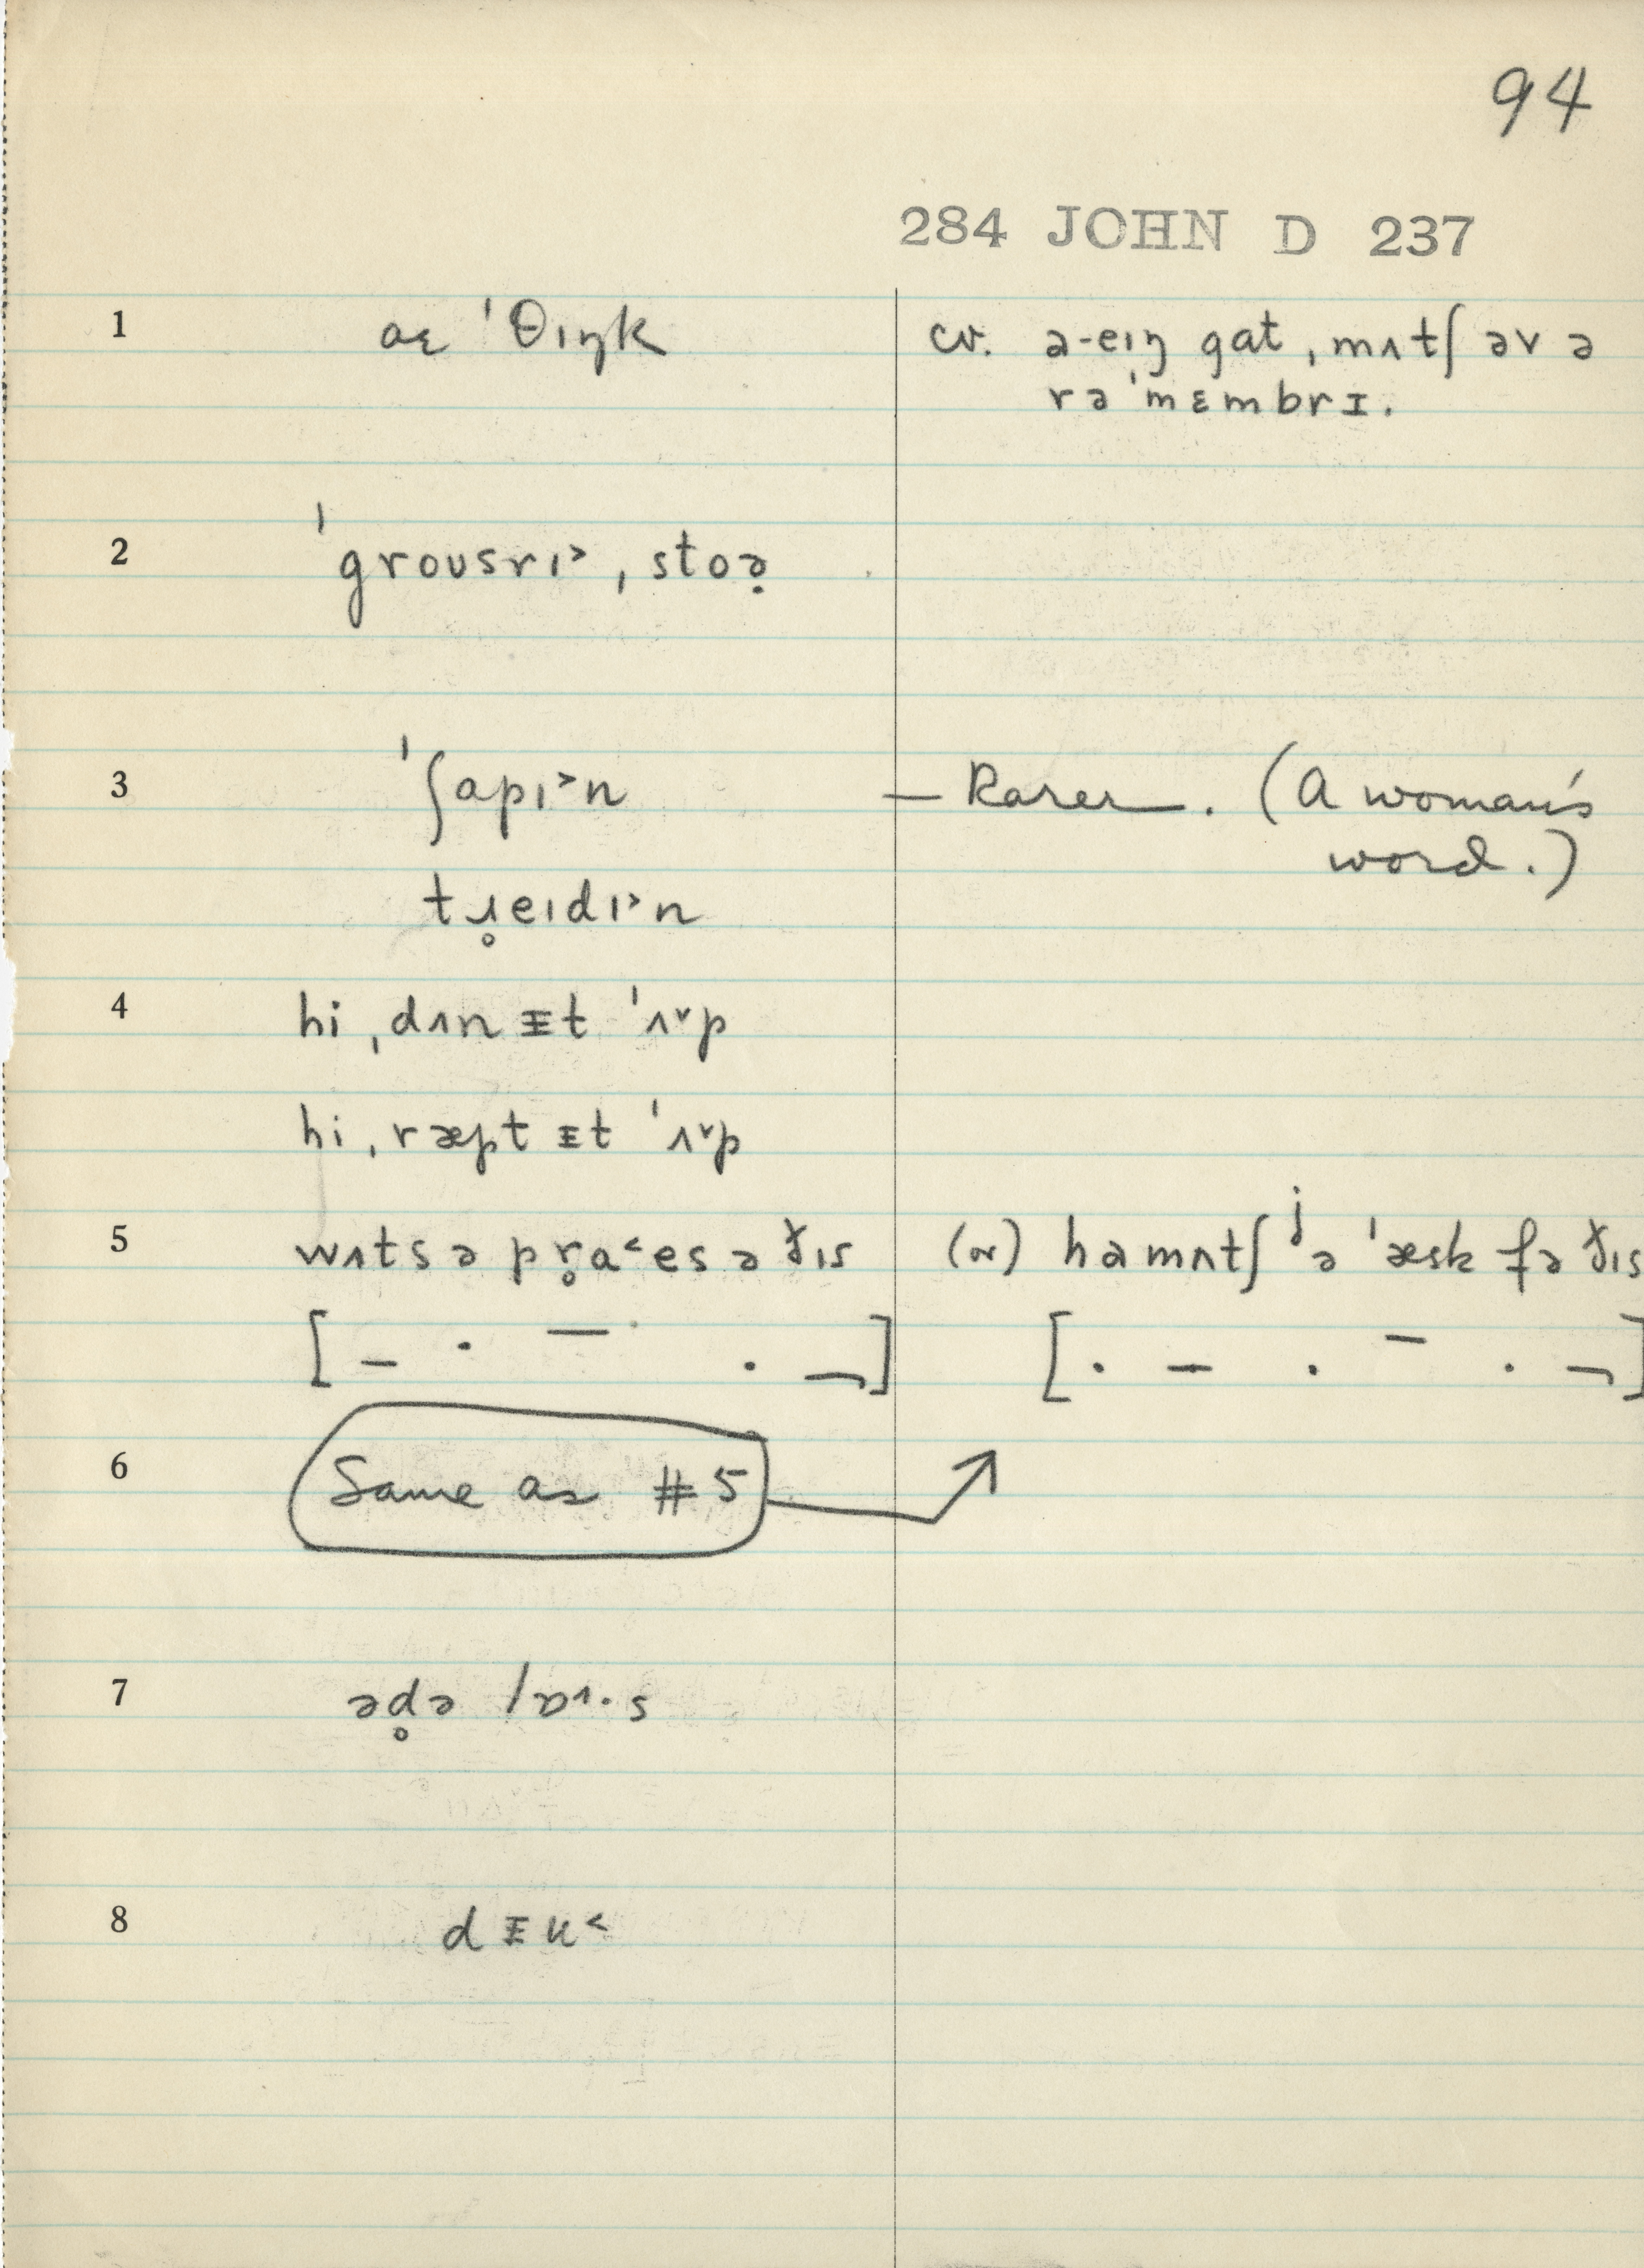 94
284 JOHN D 237
1 aɛ ˈθɪŋk cv. ə-eɪŋ gat ˌmʌtʃ əv ə
rəˈmɛmbrɪ.
2 ˈgroʊsrɪ˃ ˌstoə̣
3 ˈʃapɪ˃n — Rarer. (A woman's
word.)
tɹ̥eɪdɪ˃n
4 hi ˌdʌn ᵻt ˈʌ˅p
hi ˌræpt ᵻt ˈʌ˅p
5 wʌts ə pr̥a˂es ə ðɪs (or) hamʌtʃ ʲə ˈæsk fə ðɪs
[ – . – . ¬ ] [ . – . – . ¬ ]
6 Same as #5
7 əd̥ə ˈɒ˄·s
8 dᵻu˂